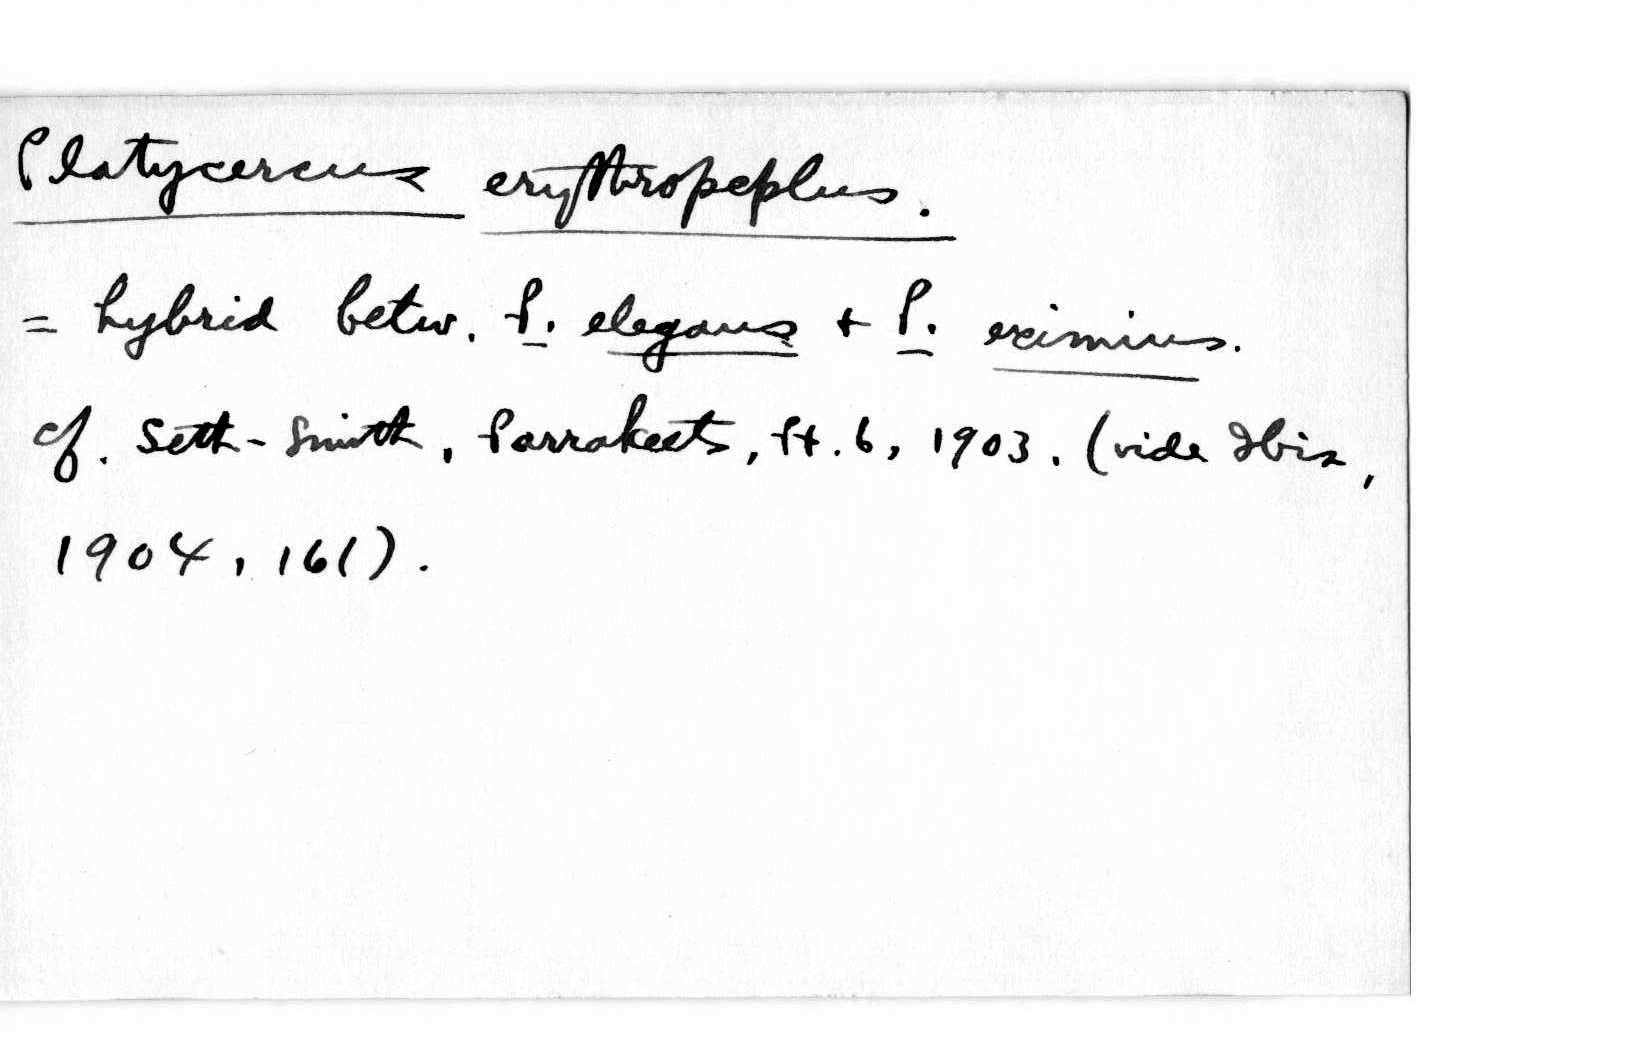 Platycercus erythropeplus.
= hybrid betw. P. elegans + P. eximius.
cf. Seth-Smith, Parrakeets, Pt. 6, 1903. (vide Ibis,
1904, 161).